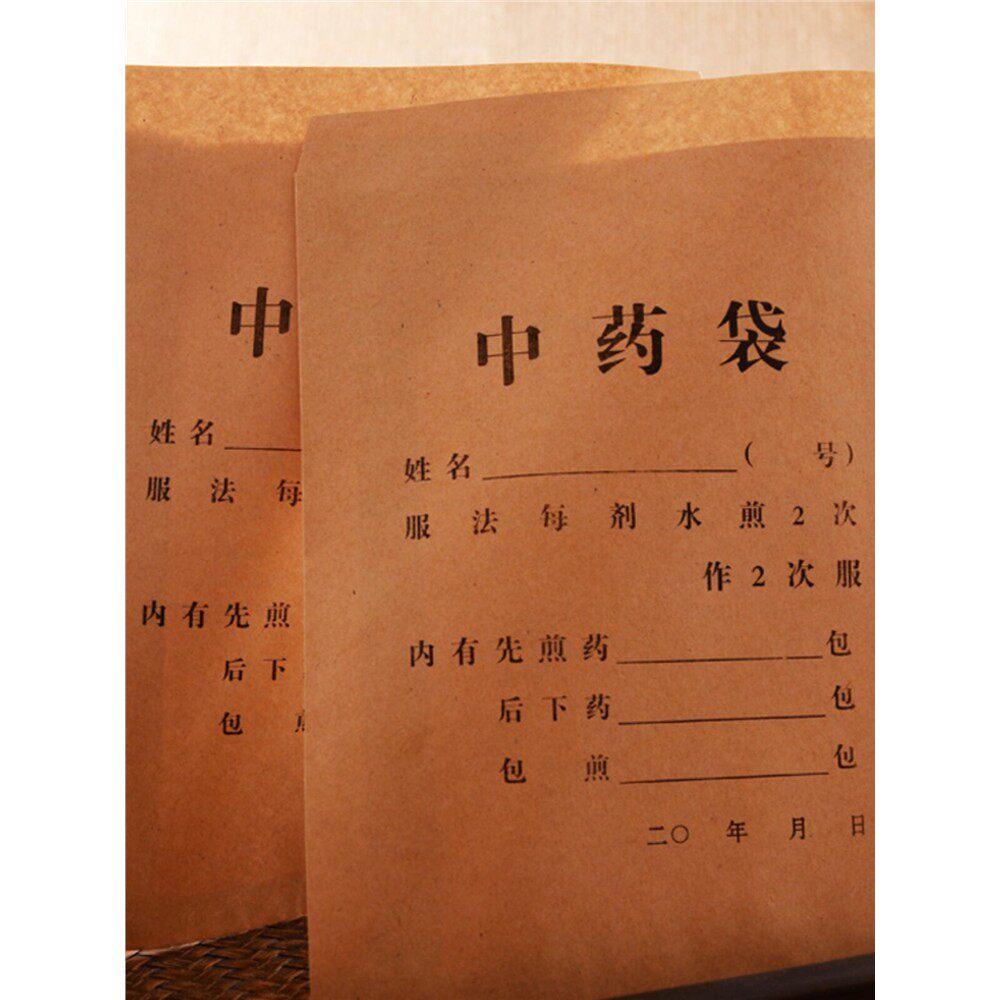 中药袋
姓名 ( 号)
服法每剂水煎2次
作2次服
内有先煎药 包
后下药 包
包煎 包
二〇 年 月 日
中
姓名
服法每
内有先煎
后下
包